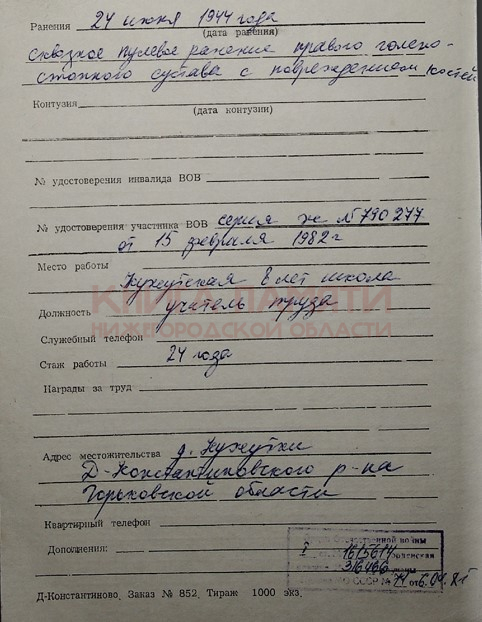 Ранения 24 июня 1944 года
(дата ранения)
сквозное пулевое ранение правого голено-
стопного сустава с повреждением костей
Контузия
(дата контузии)
№ удостоверения инвалида ВОВ
№ удостоверения участника ВОВ серия Ж №790277
от 15 февраля 1982 г
Место работы
Кужутская 8 лет школа
КНИГА ПАМЯТИ
Должность учитель труда
НИЖЕГОРОДСКОЙ ОБЛАСТИ
Служебный телефон
Стаж работы 24 года
Награды за труд
Адрес местожительства д. Кужутки
Д-Константиновского р-на
Горьковской области
Квартирный телефон
Отечественной войны
Дополнения: I 1615614
316466
МО СССР № 74 от 6.04.85
Д-Константиново, Заказ № 852, Тираж 1000 экз.